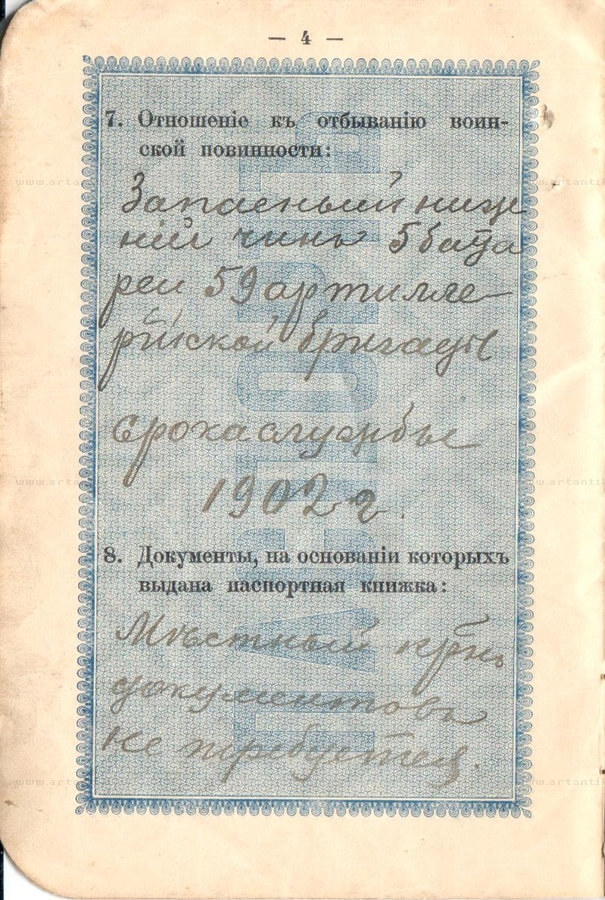 — 4 —
7. Отношеніе къ отбыванію воин-
ской повинности:
Запасный ниж
ній чинъ 5 бата
реи 59 артилле-
рійской бригады
срока службы
1902 г.
8. Документы, на основаніи которыхъ
выдана паспортная книжка:
Мѣстный
документовъ
не требуется.
ПАСПОРТЪ
www.artanti